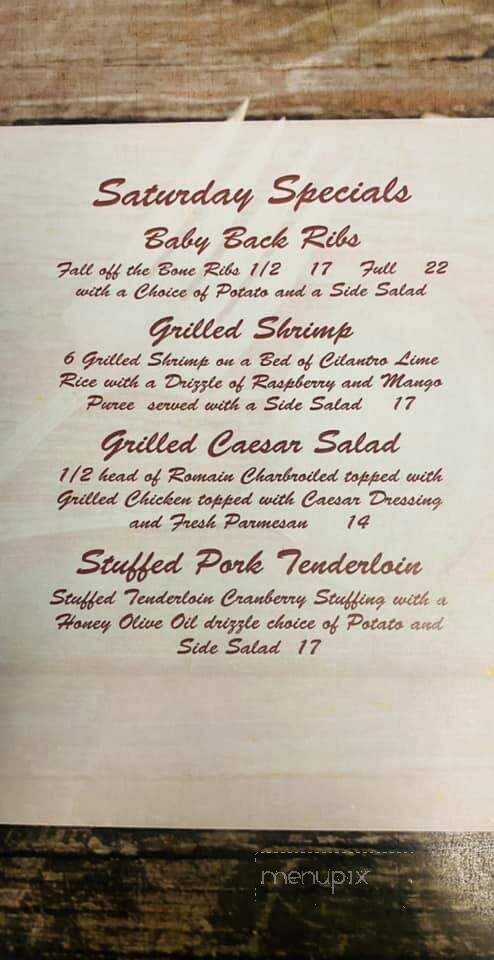 Saturday Specials
Baby Back Ribs
Fall off the Bone Ribs 1/2 17 Full 22
with a Choice of Potato and a Side Salad
Grilled Shrimp
6 Grilled Shrimp on a Bed of Cilantro Lime
Rice with a Drizzle of Raspberry and Mango
Puree served with a Side Salad 17
Grilled Caesar Salad
1/2 head of Romain Charbroiled topped with
Grilled Chicken topped with Caesar Dressing
and Fresh Parmesan 14
Stuffed Pork Tenderloin
Stuffed Tenderloin Cranberry Stuffing with a
Honey Olive Oil drizzle choice of Potato and
Side Salad 17
menupix